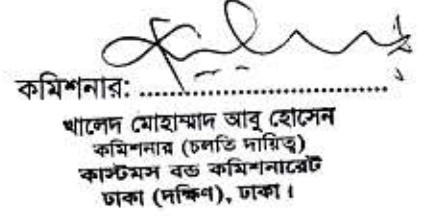 কমিশনার: ..............................
খালেদ মোহাম্মাদ আবু হোসেন
কমিশনার (চলতি দায়িত্ব)
কাস্টমস বন্ড কমিশনারেট
ঢাকা (দক্ষিণ), ঢাকা।